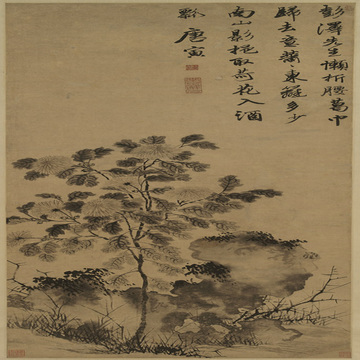 彭澤先生懶折腰葛巾
歸去意蕭〻東籬多少
南山影挹取菊花入酒
瓢 唐寅